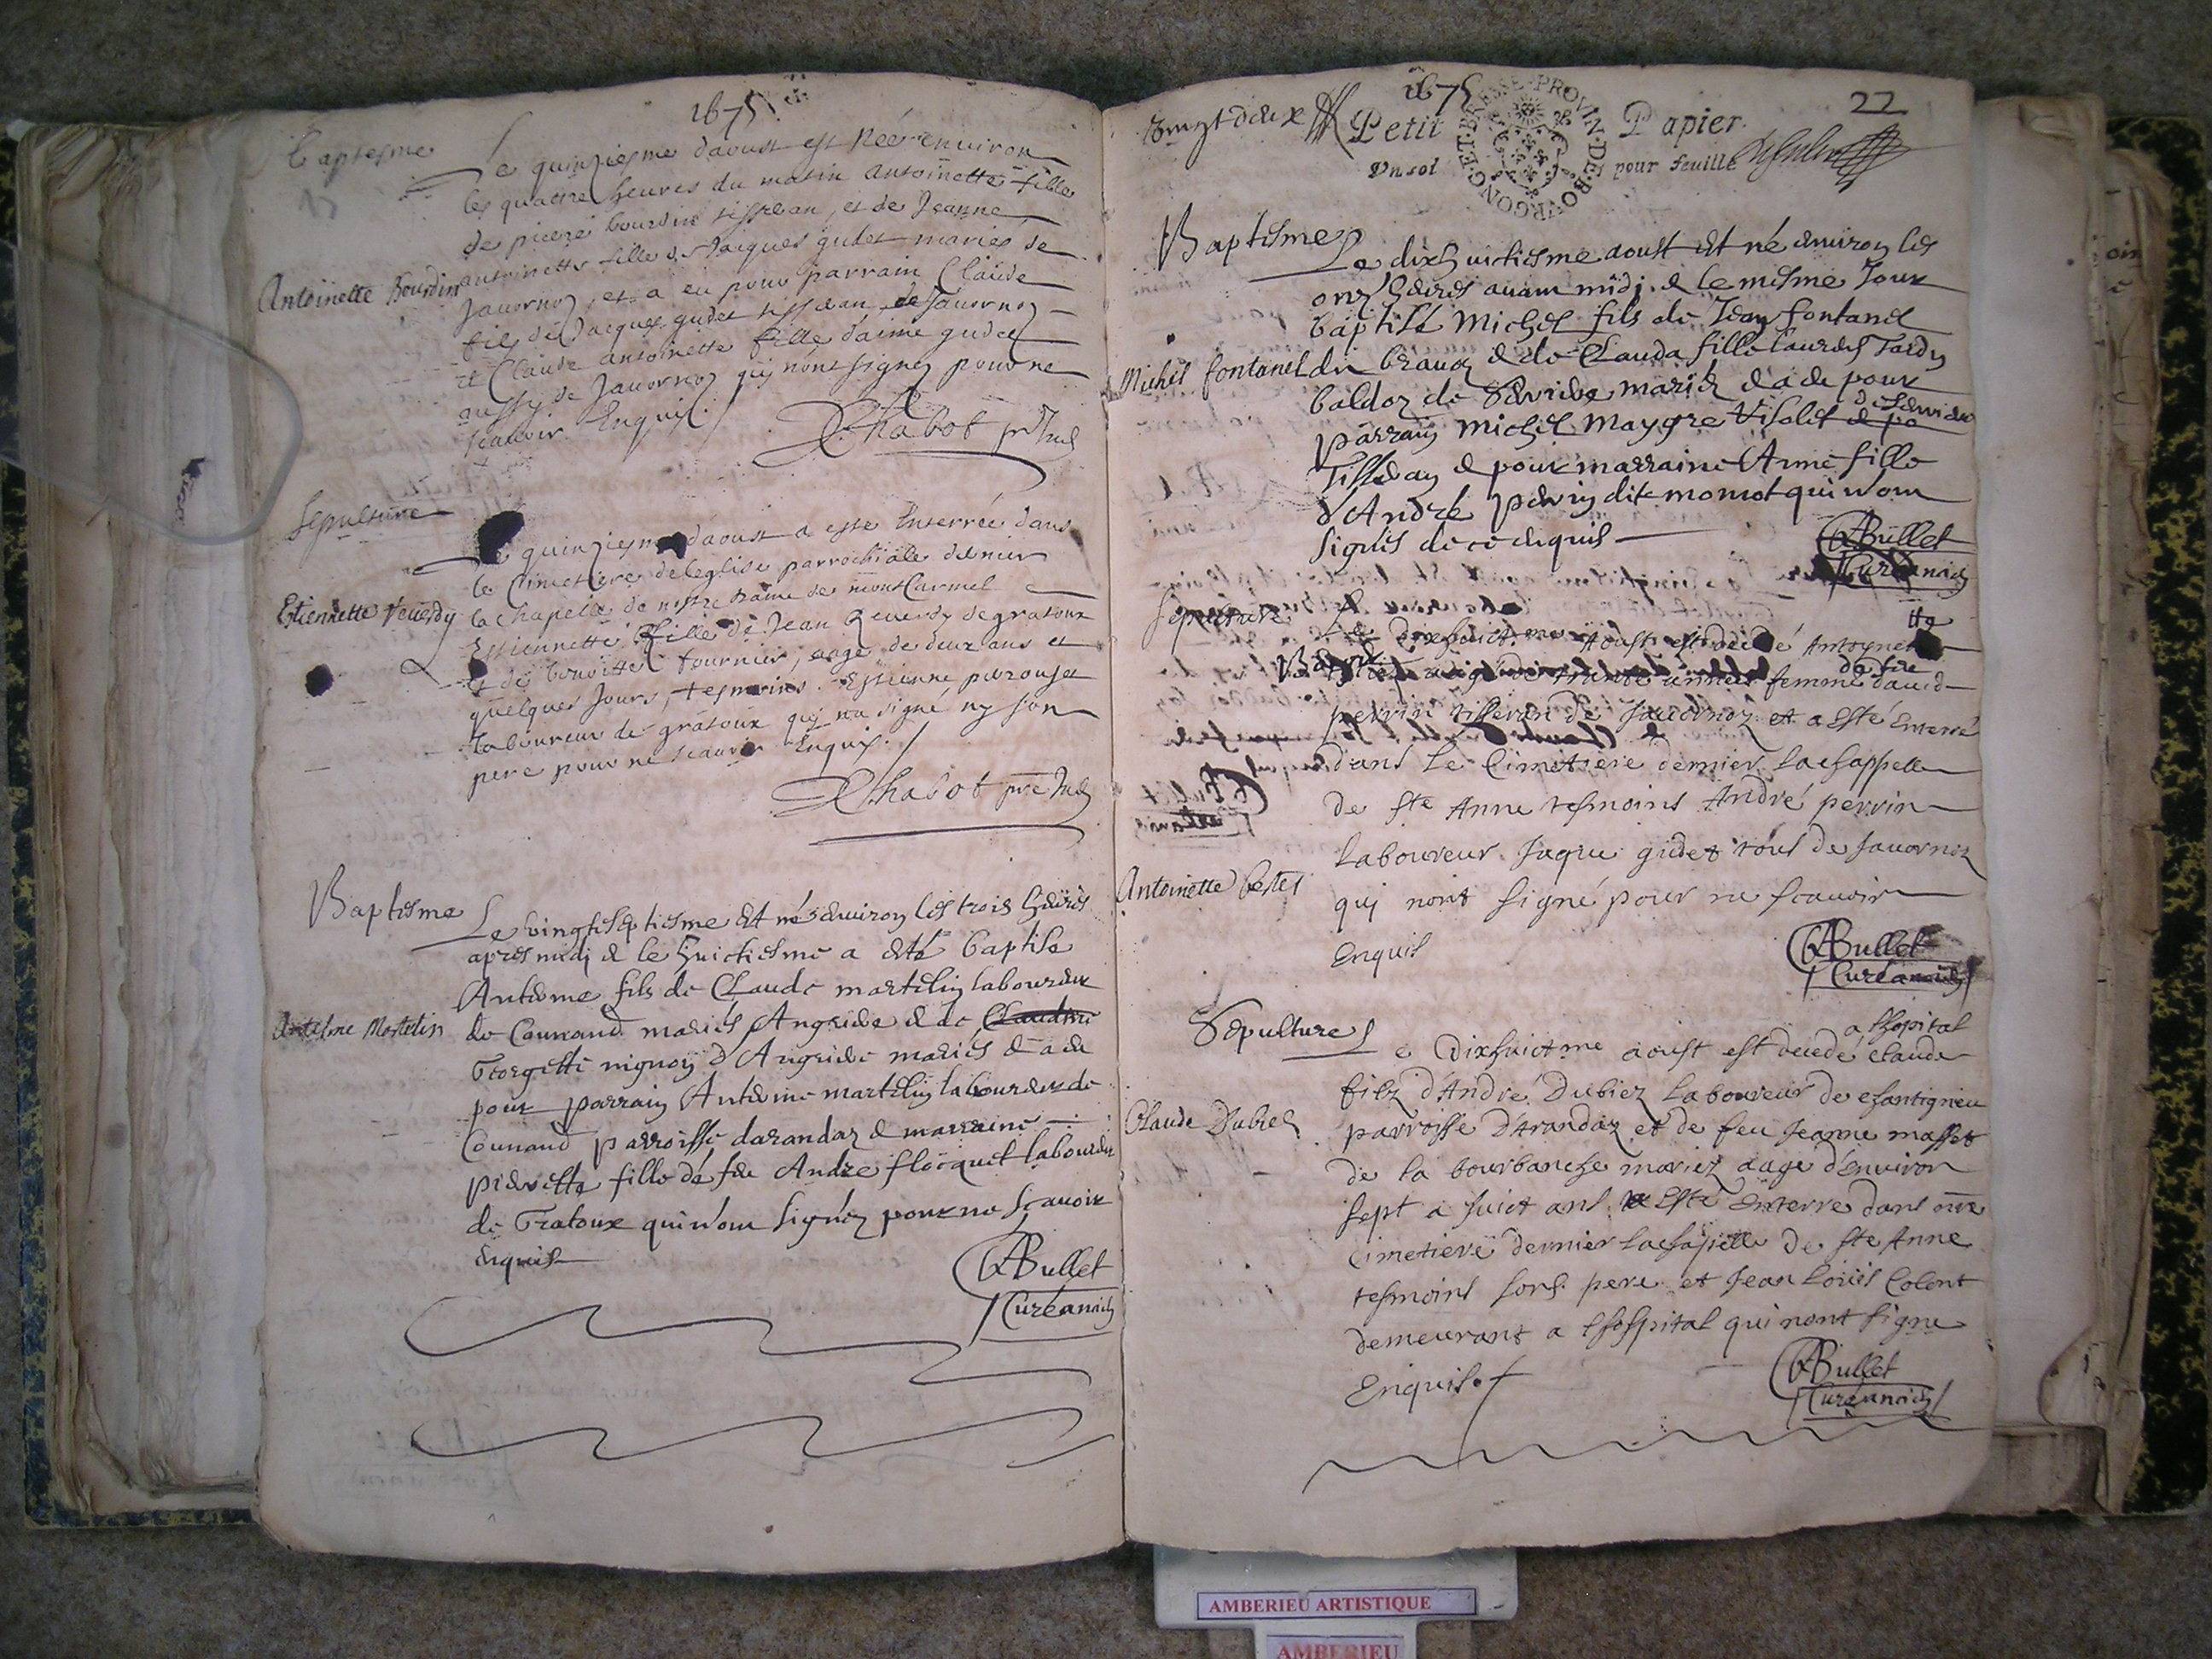 1675
Baptesme
Le quinziesme daoust est Née environ
les quattre heures du matin Antoinette fille
de pierre bourdin tisseran, et de Jeanne
antoinette fille de Jacques gudet mariés de
Antoinette Bourdin
Javornoz, et a eu pour parrain Claude
fils de Jacques gudet tisseran de Javornoz
et Claude antoinette fille daimé gudet
aussy de Javornoz quj nont signez pour ne
scavoir Enquis./
Chabot
Sepulture
Le quinziesme daoust a esté Enterrée dans
le Cimetiere de leglise parrochiale dernier
la chapelle de nostre dame de mont Carmel
Etiennette Reverdy
Estiennette fille de Jean Reverdy de gratoux
et de benoitte fournier, aage de deux ans et
quelques Jours, tesmoins Estienne perouset
laboureur de gratoux quj na signé ny son
pere pour ne scavoir Enquis./
Chabot
Baptesme
Le vingtseptiesme est né environ les trois heures
apres midj & le huictiesme a esté baptisé
Anteme fils de Claude martelin laboureur
Antelme Martelin
de Counand mariés Angrieve & de Claudine
Georgette d'Angrieve mariés & a eu
pour parrain Anteme martelin laboureur de
Counand parroisse darandaz & marraine
pierrette fille de feu Andre floquet laboureur
de Gratoux qui n'ont signéz pour ne scavoir
enquis
ABullet
Curéancich
1675
vingt deux
Petit Papier.
22
Vn sol pour feuille
BRESSE PROVIN. DE. BOVRGONG. ET.
Baptesme
Le dixhuictiesme aoust est né environ les
onz heures avant midj & le mesme Jour
baptisé Michel fils de Jean fontanel
Michel fontanel
du brauoz & de Clauda fille Laurens Tardy
baldoz de mariéz & a eu pour
parrain Michel Maygre Visolet
Tisseran & pour marraine Anne fille
d'André perrin dit momot qui n'ont
signés de ce enquis
ABullet
Curéancich
Sepulture
Le Dixhuictme Aoust est décédé Antoynette
femme de feu david
perrin tisseran de Javornoz et a Esté Enterré
dans Le Cimetiere dernier La chappelle
de ste Anne tesmoins André perrin
laboureur Jaque gudet tous de Javornoz
Antoinette
quj nont signé pour ne scavoir
Enquis
ABullet
Curéancich
Sepulture
a lhopital
Le Dixhuictme aoust est decedé Claude
filz d'André Dubiez Laboureur de chantignieu
Claude Dubiez
parroisse D'Arandaz et de feu Jeanne masset
de la bourbanche mariez aage d'environ
sept a huict ans a Esté Enterré dans nre
Cimetiere dernier La chapelle de ste Anne
tesmoins son pere et Jean Louis Colont
demeurant a lhospital qui nont signe
Enquis.
ABullet
Curéancich
AMBERIEU ARTISTIQUE
AMBERIEU